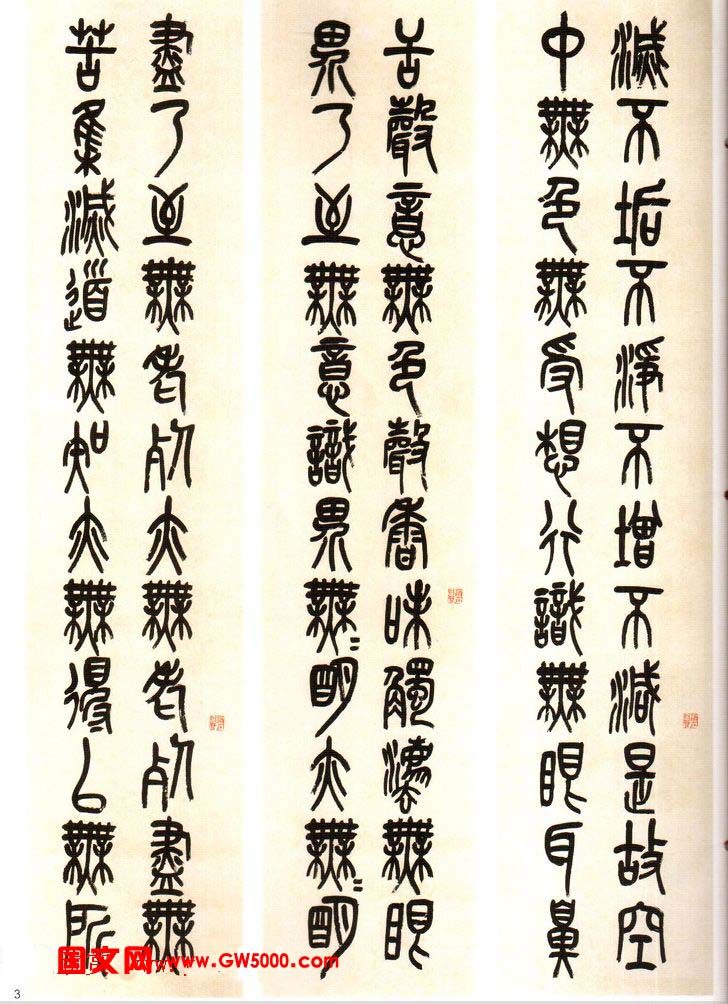 滅不垢不淨不增不減是故空
中無色無受想行識無眼耳鼻
舌聲意無色聲香味觸法無眼
界乃至無意識界無〻明亦無〻明
盡乃至無老死亦無老死盡無
苦集滅道無知亦無得以無所
图文网 www.GW5000.com
3